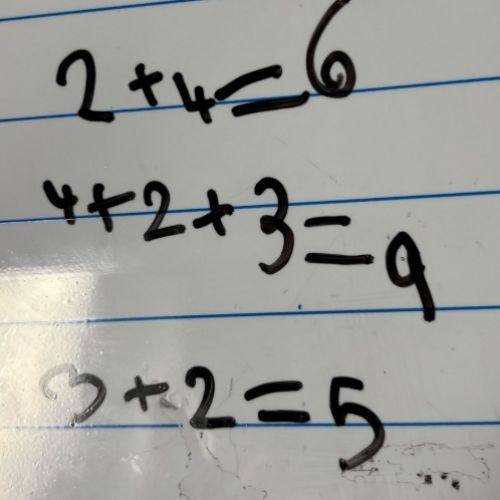 2+4=6
4+2+3=9
3+2=5